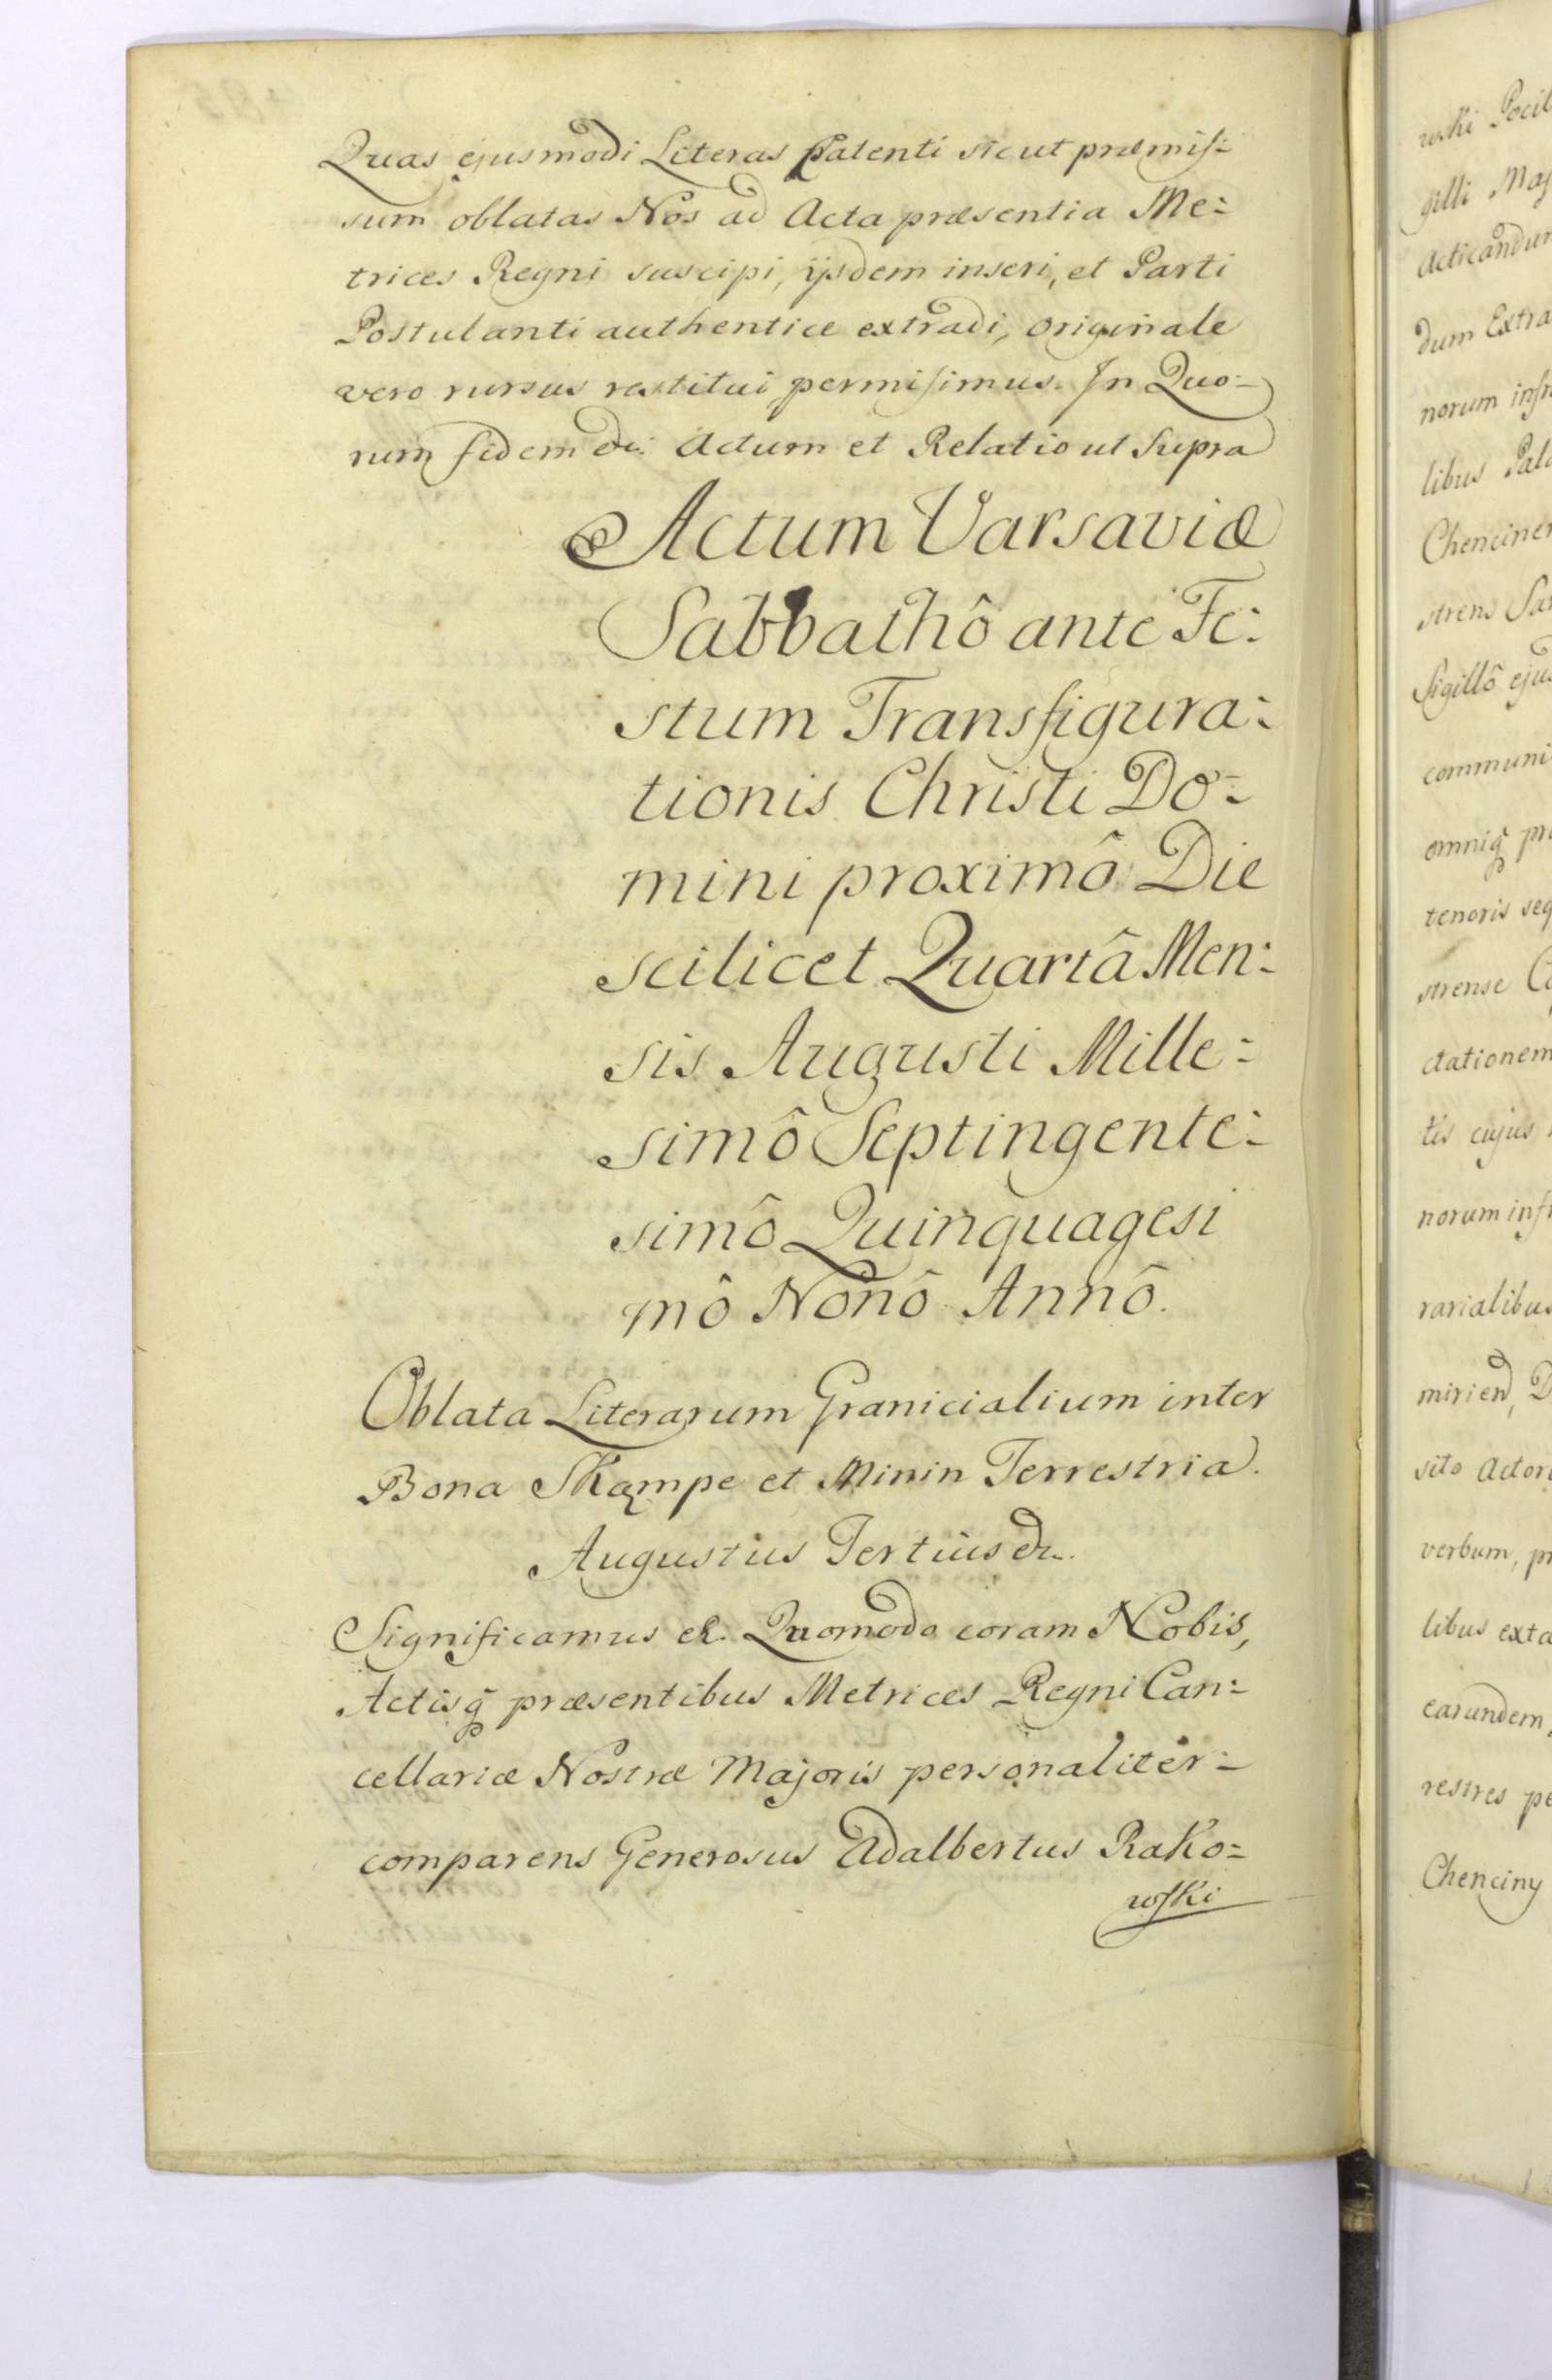 Quas ejusmodi Literas Patenti sicut præmis=
sum oblatas Nos ad Acta præsentia Me=
trices Regni suscipi, ijsdem inseri, et Parti
Postulanti authentice extradi, originale
vero rursus restitui permisimus. In Quo=
rum fidem etc: Actum et Relatio ut Supra
Actum Varsaviæ
Sabbathô ante Fe=
stum Transfigura=
tionis Christi Do=
mini proximô Die
scilicet Quartâ Men=
sis Augusti Mille=
simô Septingente=
simô Quinquagesi
mô Nonô Annô.
Oblata Literarum Granicialium inter
Bona Skąmpe et Minin Terrestria.
Augustus Tertius etc.
Significamus etc. Quomodo coram Nobis,
Actisq præsentibus Metrices Regni Can=
cellariæ Nostræ Majoris personaliter=
comparens Generosus Adalbertus Rako=
wski
wski
gilli
Acticandum
dum Extra
norum
libus
strens
Sigillô
communi
omniq
tenoris
strense
ctationem
tis cujus
norum
rarialibus
sito
verbum,
libus
earundem,
restres
Chenciny